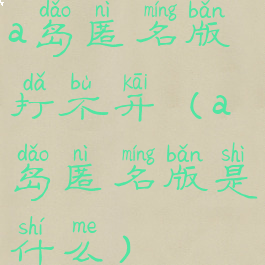 dǎo nì míng bǎn
a岛匿名版
dǎ bù kāi
打不开（a
dǎo nì míng bǎn shì
岛匿名版是
shí me
什么）